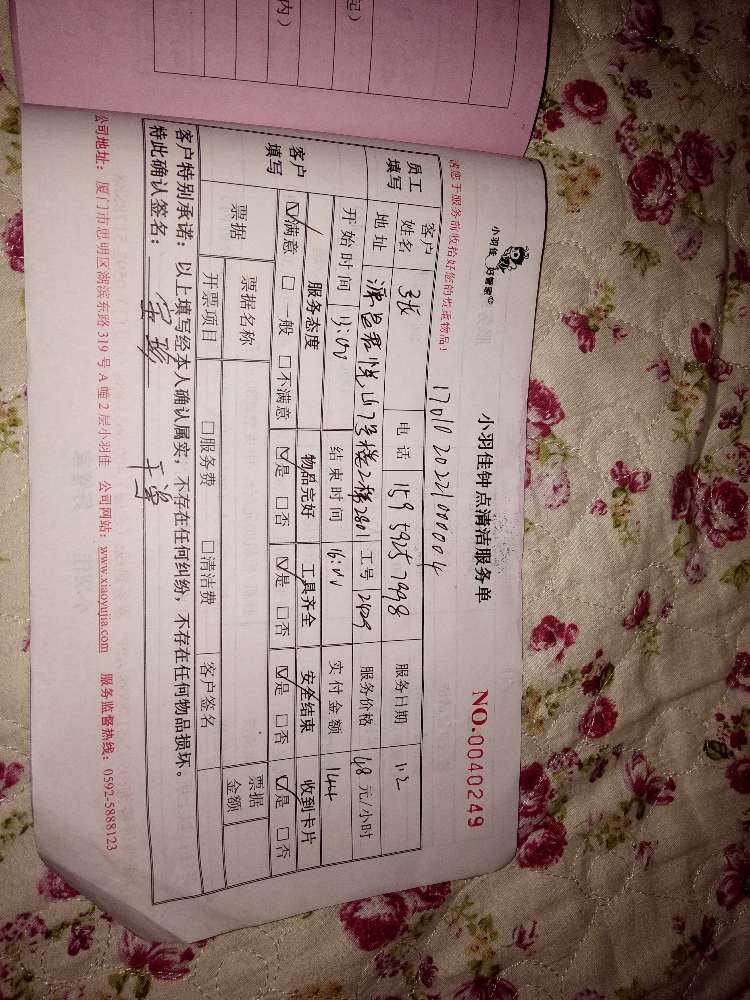 起）
内）
小羽佳 好管家
小羽佳钟点清洁服务单
NO.0040249
请您于服务前收拾好您的贵重物品！
17011202221000004
员工填写 客户姓名 张 电话 159 5925 7998 服务日期 11.2
地址 源昌君悦山7号楼2梯2801 工号 2429 服务价格 48 元/小时
开始时间 13:00 结束时间 16:00 实付金额 144
客户填写 服务态度 物品完好 工具齐全 安全结束 收到卡片
☑满意 □一般 □不满意 ☑是 □否 ☑是 □否 ☑是 □否 ☑是 □否
票据 票据名称 票据金额
开票项目 □服务费 □清洁费 客户签名
客户特别承诺：以上填写经本人确认属实，不存在任何纠纷，不存在任何物品损坏。
特此确认签名：
公司地址：厦门市思明区湖滨东路319号A幢2层小羽佳 公司网站：www.xiaoyujia.com 服务监督热线：0592-5888123